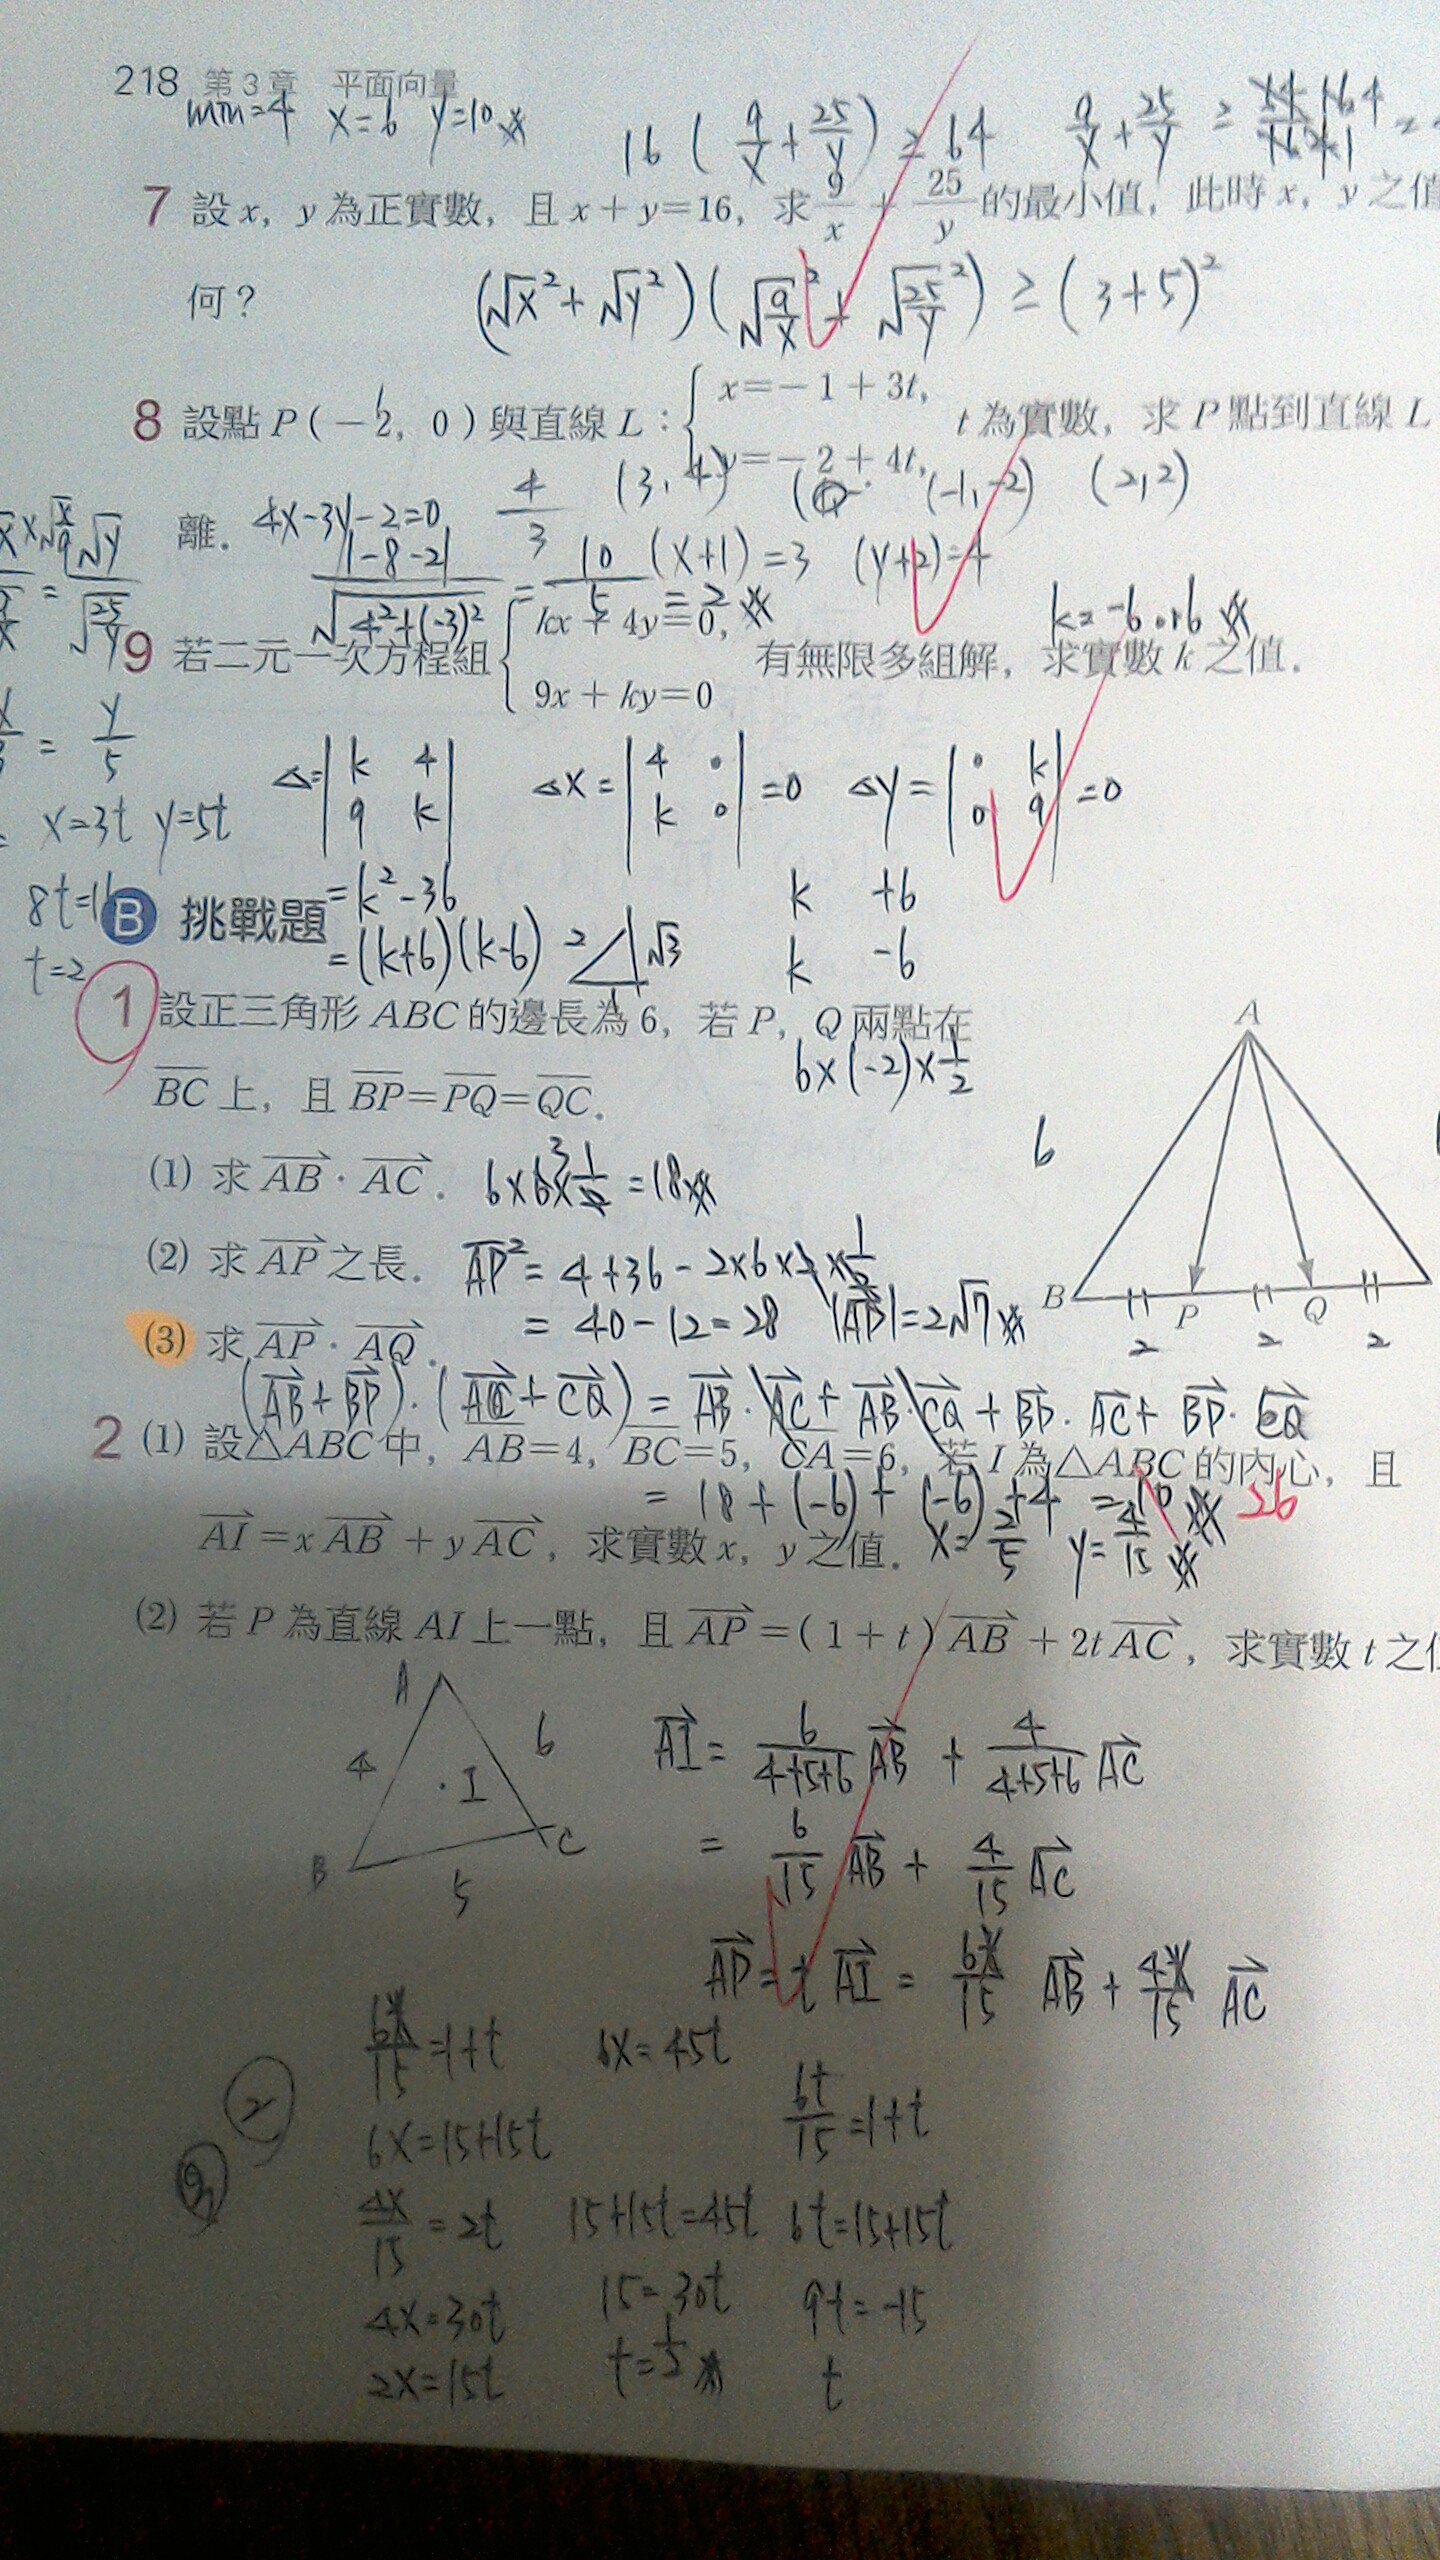 218 第3章 平面向量
min=4 x=6 y=10
16 ( 9/x + 25/y ) ≥ 64 9/x + 25/y ≥
7 設 x, y 為正實數, 且 x + y = 16, 求 9/x + 25/y 的最小值, 此時 x, y 之值
何?
(√x² + √y²)(√(9/x)² + √(25/y)²) ≥ (3+5)²
8 設點 P(-2, 0) 與直線 L: { x = -1 + 3t, y = -2 + 4t, t 為實數, 求 P 點到直線 L
4/3 (3, 4) (-1, -2) (2, 2)
離. 4x-3y-2=0
|-8-2| / √(4²+(-3)²) = 10/5 = 2
(x+1)=3 (y+2)=4
k=-6 or 6
9 若二元一次方程組 { kx + 4y = 0, 9x + ky = 0 有無限多組解, 求實數 k 之值.
= y/5
x=3t y=5t
8t=16
t=2
△= |k 4; 9 k| △x = |4 0; k 0| = 0 △y = |0 k; 0 9| = 0
= k²-36
= (k+6)(k-6)
k +6
k -6
2 √3 1
B 挑戰題
1 設正三角形 ABC 的邊長為 6, 若 P, Q 兩點在
BC 上, 且 BP = PQ = QC.
6×(-2)×1/2
(1) 求 AB · AC. 6×6×1/2 = 18
(2) 求 AP 之長. AP² = 4+36-2×6×2×1/2
= 40-12=28 |AP|=2√7
(3) 求 AP · AQ.
(AB+BP)·(AC+CQ) = AB·AC + AB·CQ + BP·AC + BP·CQ
= 18+(-6)+(-6)+4 = 10 26
A
6
B P Q
2 2 2
2 (1) 設△ABC 中, AB=4, BC=5, CA=6, 若 I 為△ABC 的內心, 且
AI = x AB + y AC, 求實數 x, y 之值. x=2/5 y=4/15
(2) 若 P 為直線 AI 上一點, 且 AP = (1+t) AB + 2t AC, 求實數 t 之
A
4 6
I
B C
5
AI = 6/(4+5+6) AB + 4/(4+5+6) AC
= 6/15 AB + 4/15 AC
AP = t AI = 6x/15 AB + 4x/15 AC
6x/15 = 1+t
6x=15+15t
4x/15 = 2t
4x=30t
2x=15t
6x=45t
15+15t=45t
15=30t
t=1/2
6t/15 = 1+t
6t=15+15t
9t=-15
t
2